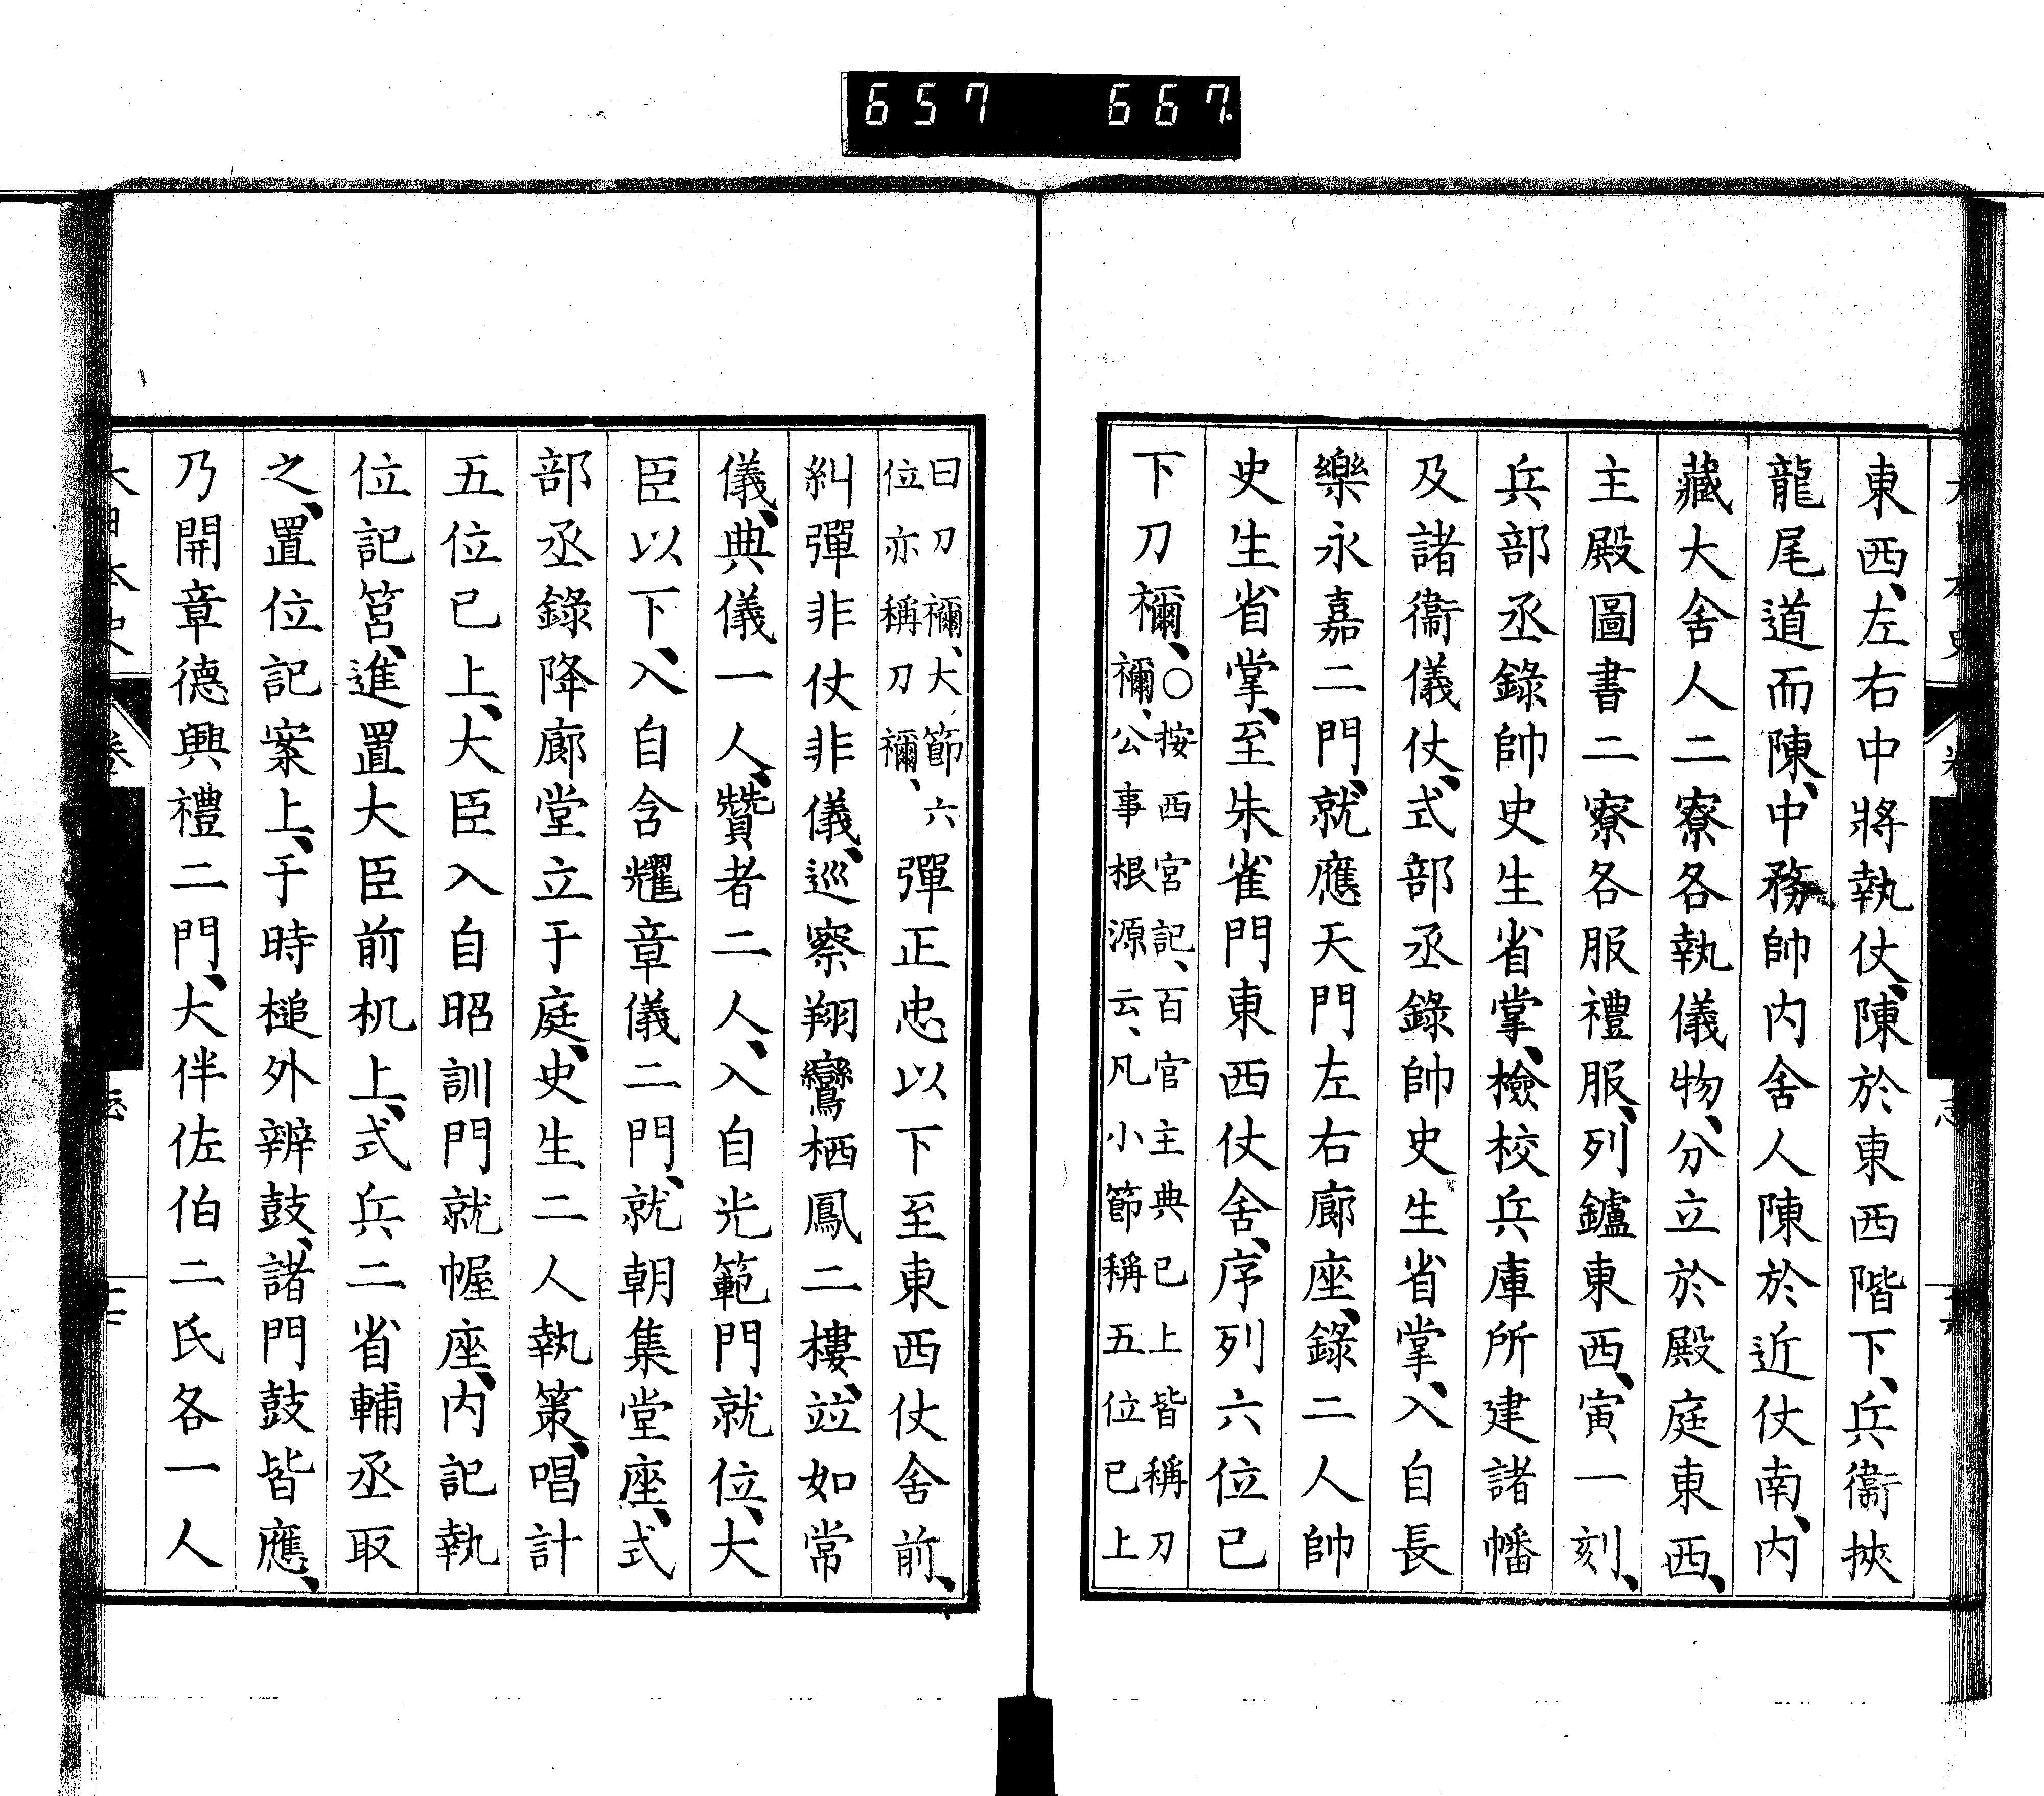 657 667.
東西、左右中將執仗、陳於東西階下、兵衞挾
龍尾道而陳、中務帥内舍人陳於近仗南、内
藏大舍人二寮各執儀物、分立於殿庭東西、
主殿圖書二寮各服禮服、列鑪東西、寅一刻、
兵部丞錄帥史生省掌、檢校兵庫所建諸幡
及諸衞儀仗、式部丞錄帥史生省掌、入自長
樂永嘉二門、就應天門左右廊座、錄二人帥
史生省掌、至朱雀門東西仗舍、序列六位已
下刀禰、
○按西宮記、百官主典已上皆稱刀
禰、公事根源云、凡小節稱五位已上
曰刀禰、大節六
位亦稱刀禰、
彈正忠以下至東西仗舍前、
糾彈非仗非儀、巡察翔鸞栖鳳二樓、竝如常
儀、典儀一人、贊者二人、入自光範門就位、大
臣以下、入自含耀章儀二門、就朝集堂座、式
部丞錄降廊堂立于庭、史生二人執策、唱計
五位已上、大臣入自昭訓門就幄座、内記執
位記筥、進置大臣前机上、式兵二省輔丞取
之、置位記案上、于時槌外辨鼓、諸門鼓皆應、
乃開章德興禮二門、大伴佐伯二氏各一人